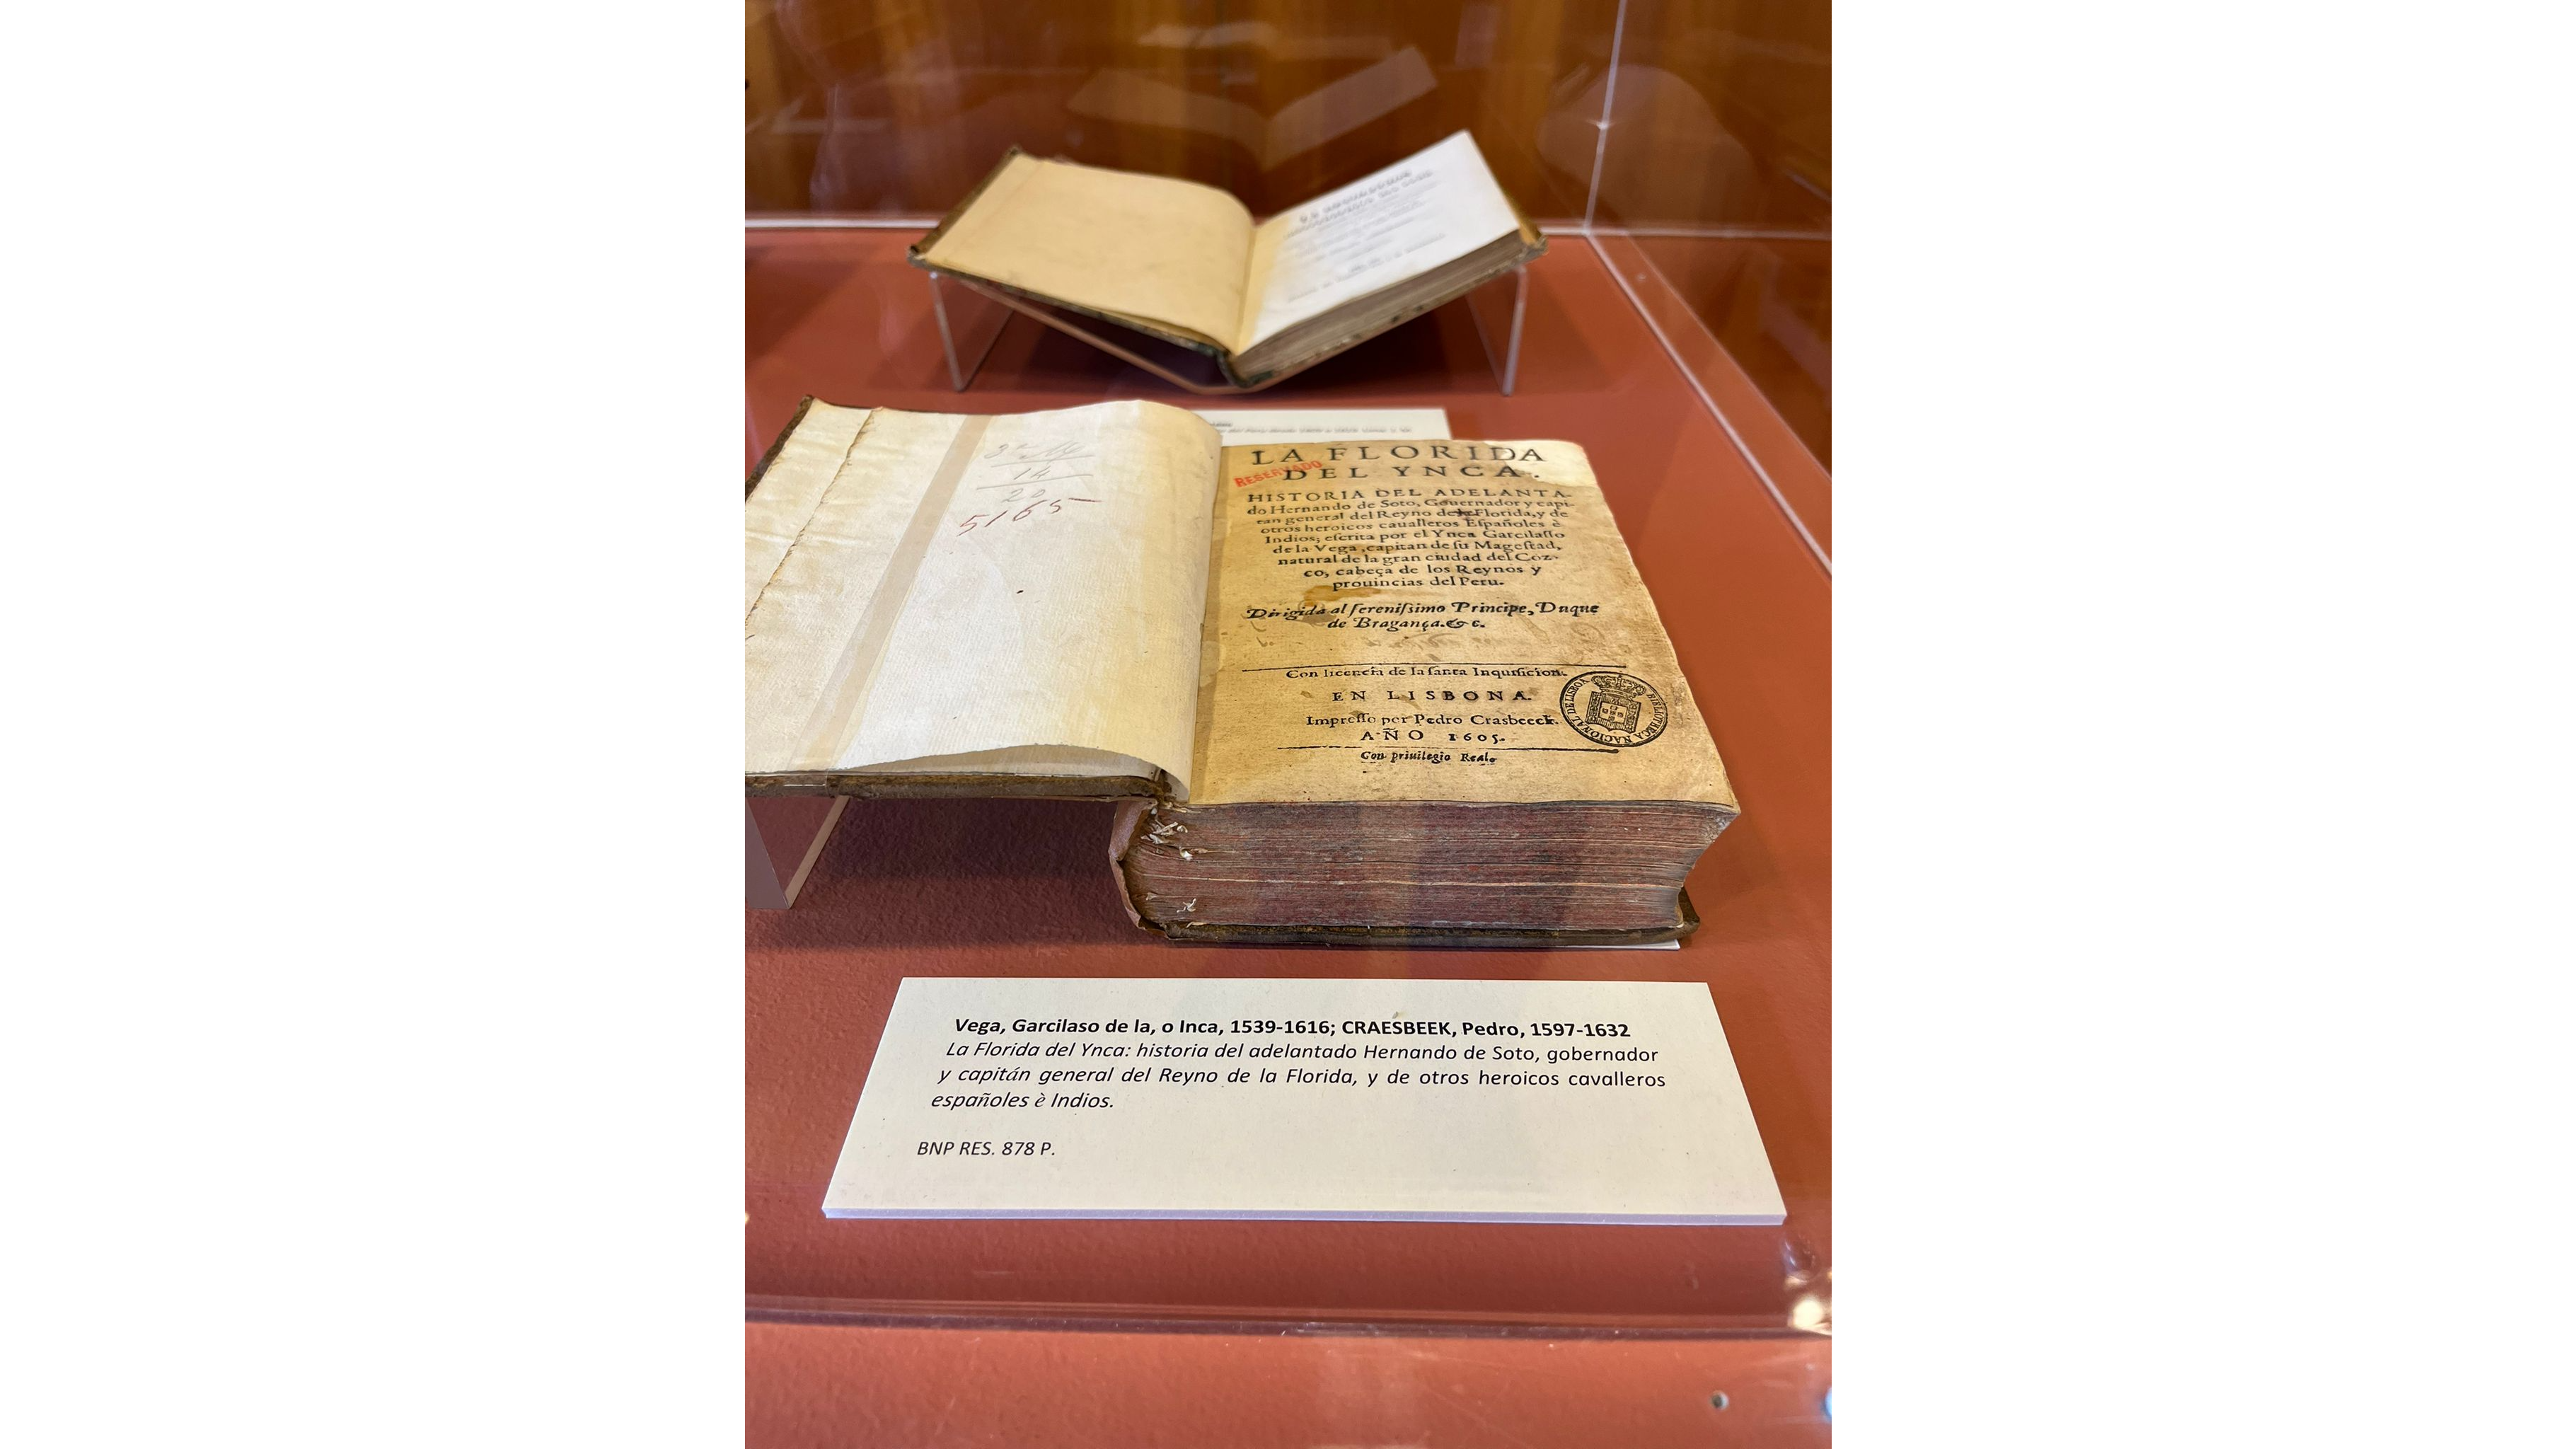 5165
LA FLORIDA
DEL YNCA.
RESERVADO
HISTORIA DEL ADELANTA-
do Hernando de Soto, Gouernador y capi-
tan general del Reyno de la Florida, y de
otros heroicos caualleros Eſpañoles è
Indios; eſcrita por el Ynca Garcilaſſo
de la Vega, capitan de ſu Mageſtad,
natural de la gran ciudad del Coz-
co, cabeça de los Reynos y
prouincias del Peru.
Dirigida al ſereniſsimo Principe, Duque
de Bragança. & c.
Con licencia de la ſanta Inquiſicion.
EN LISBONA.
Impreſſo por Pedro Crasbeeck.
AÑO 1605.
Con priuilegio Real.
BIBLIOTHECA NACIONAL DE LISBOA
Vega, Garcilaso de la, o Inca, 1539-1616; CRAESBEEK, Pedro, 1597-1632
La Florida del Ynca: historia del adelantado Hernando de Soto, gobernador
y capitán general del Reyno de la Florida, y de otros heroicos cavalleros
españoles è Indios.
BNP RES. 878 P.